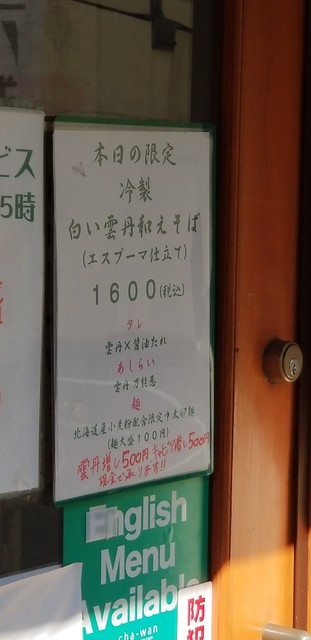 ビス
5時
本日の限定
冷製
白い雲丹和えそば
(エスプーマ仕立て)
1600(税込)
タレ
雲丹×醤油だれ
あしらい
雲丹 万能葱
麺
北海道産小麦粉配合限定中太の麺
(麺大盛100円)
雲丹増し500円 キャビア増し500円
現金で承ります!!
English
Menu
Available
cha-wan
防犯